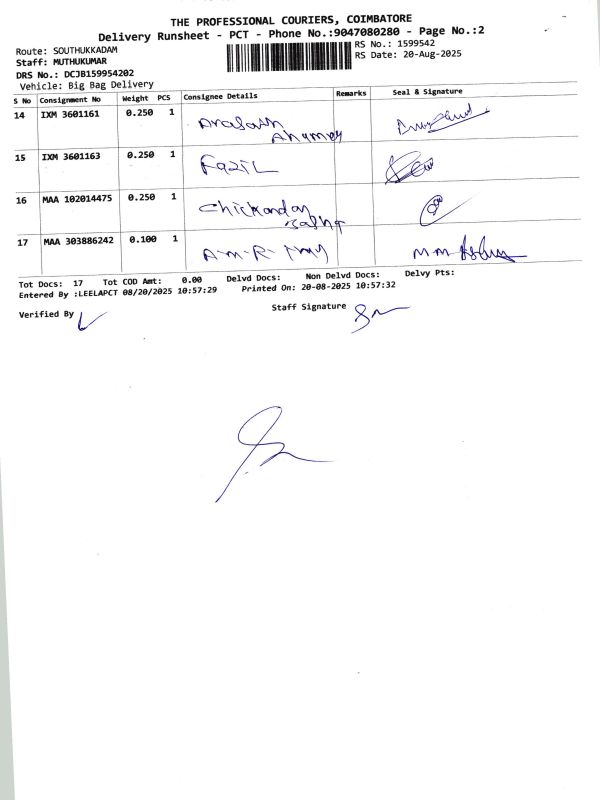 THE PROFESSIONAL COURIERS, COIMBATORE
Delivery Runsheet - PCT - Phone No.:9047080280 - Page No.:2
Route: SOUTHUKKADAM
RS No.: 1599542
Staff: MUTHUKUMAR
RS Date: 20-Aug-2025
DRS No.: DCJB159954202
Vehicle: Big Bag Delivery
S No Consignment No Weight PCS Consignee Details Remarks Seal & Signature
14 IXM 3601161 0.250 1
15 IXM 3601163 0.250 1 Fazil
16 MAA 102014475 0.250 1
17 MAA 303886242 0.100 1 A-M-R-
Tot Docs: 17 Tot COD Amt: 0.00 Delvd Docs: Non Delvd Docs: Delvy Pts:
Entered By :LEELAPCT 08/20/2025 10:57:29 Printed On: 20-08-2025 10:57:32
Verified By Staff Signature